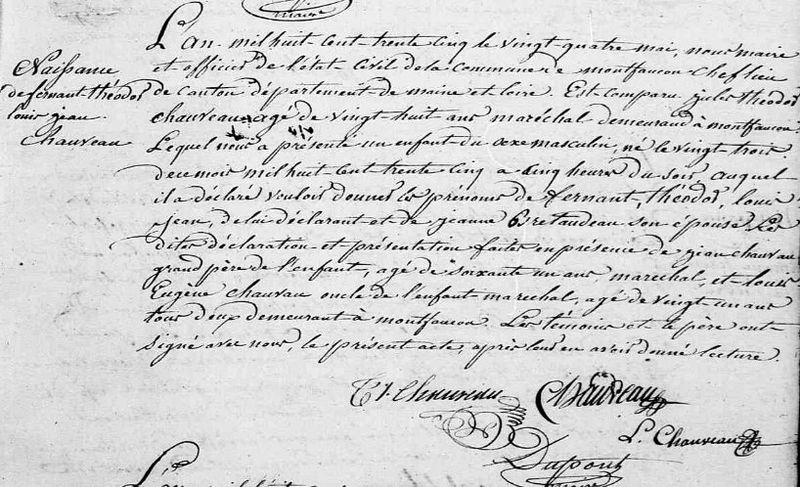 maire
L'an mil huit cent trente cinq le vingt-quatre mai, nous maire
et officier de l'état civil de la commune de montfaucon chef lieu
Naissance
de fernant théodor
louis jean
Chauveau
de canton département de maine et loire. Est comparu jules théodor
chauveau agé de vingt-huit ans maréchal demeurand à montfaucon
Lequel nous a présenté un enfant du sexe masculin, né le vingt trois
de ce mois mil huit cent trente cinq a cinq heures du soir, auquel
il a déclaré vouloir donner les prénoms de fernant, théodor, louis
jean, de lui déclarant et de jeanne Bretaudeau son épouse. Les
dites déclaration et présentation faites en présence de jean chauvau
grand père de l'enfant, agé de soixante un ans, marechal, et louis
Eugène chauvau oncle de l'enfant marechal, agé de vingt un ans
tous deux demeurant à montfaucon. Les témoins et le père ont
signé avec nous, le présent acte, après leur en avoir donné lecture.
Chauveau
Chauveau
L. Chauveau
Dupont
maire
L'an mil huit cent